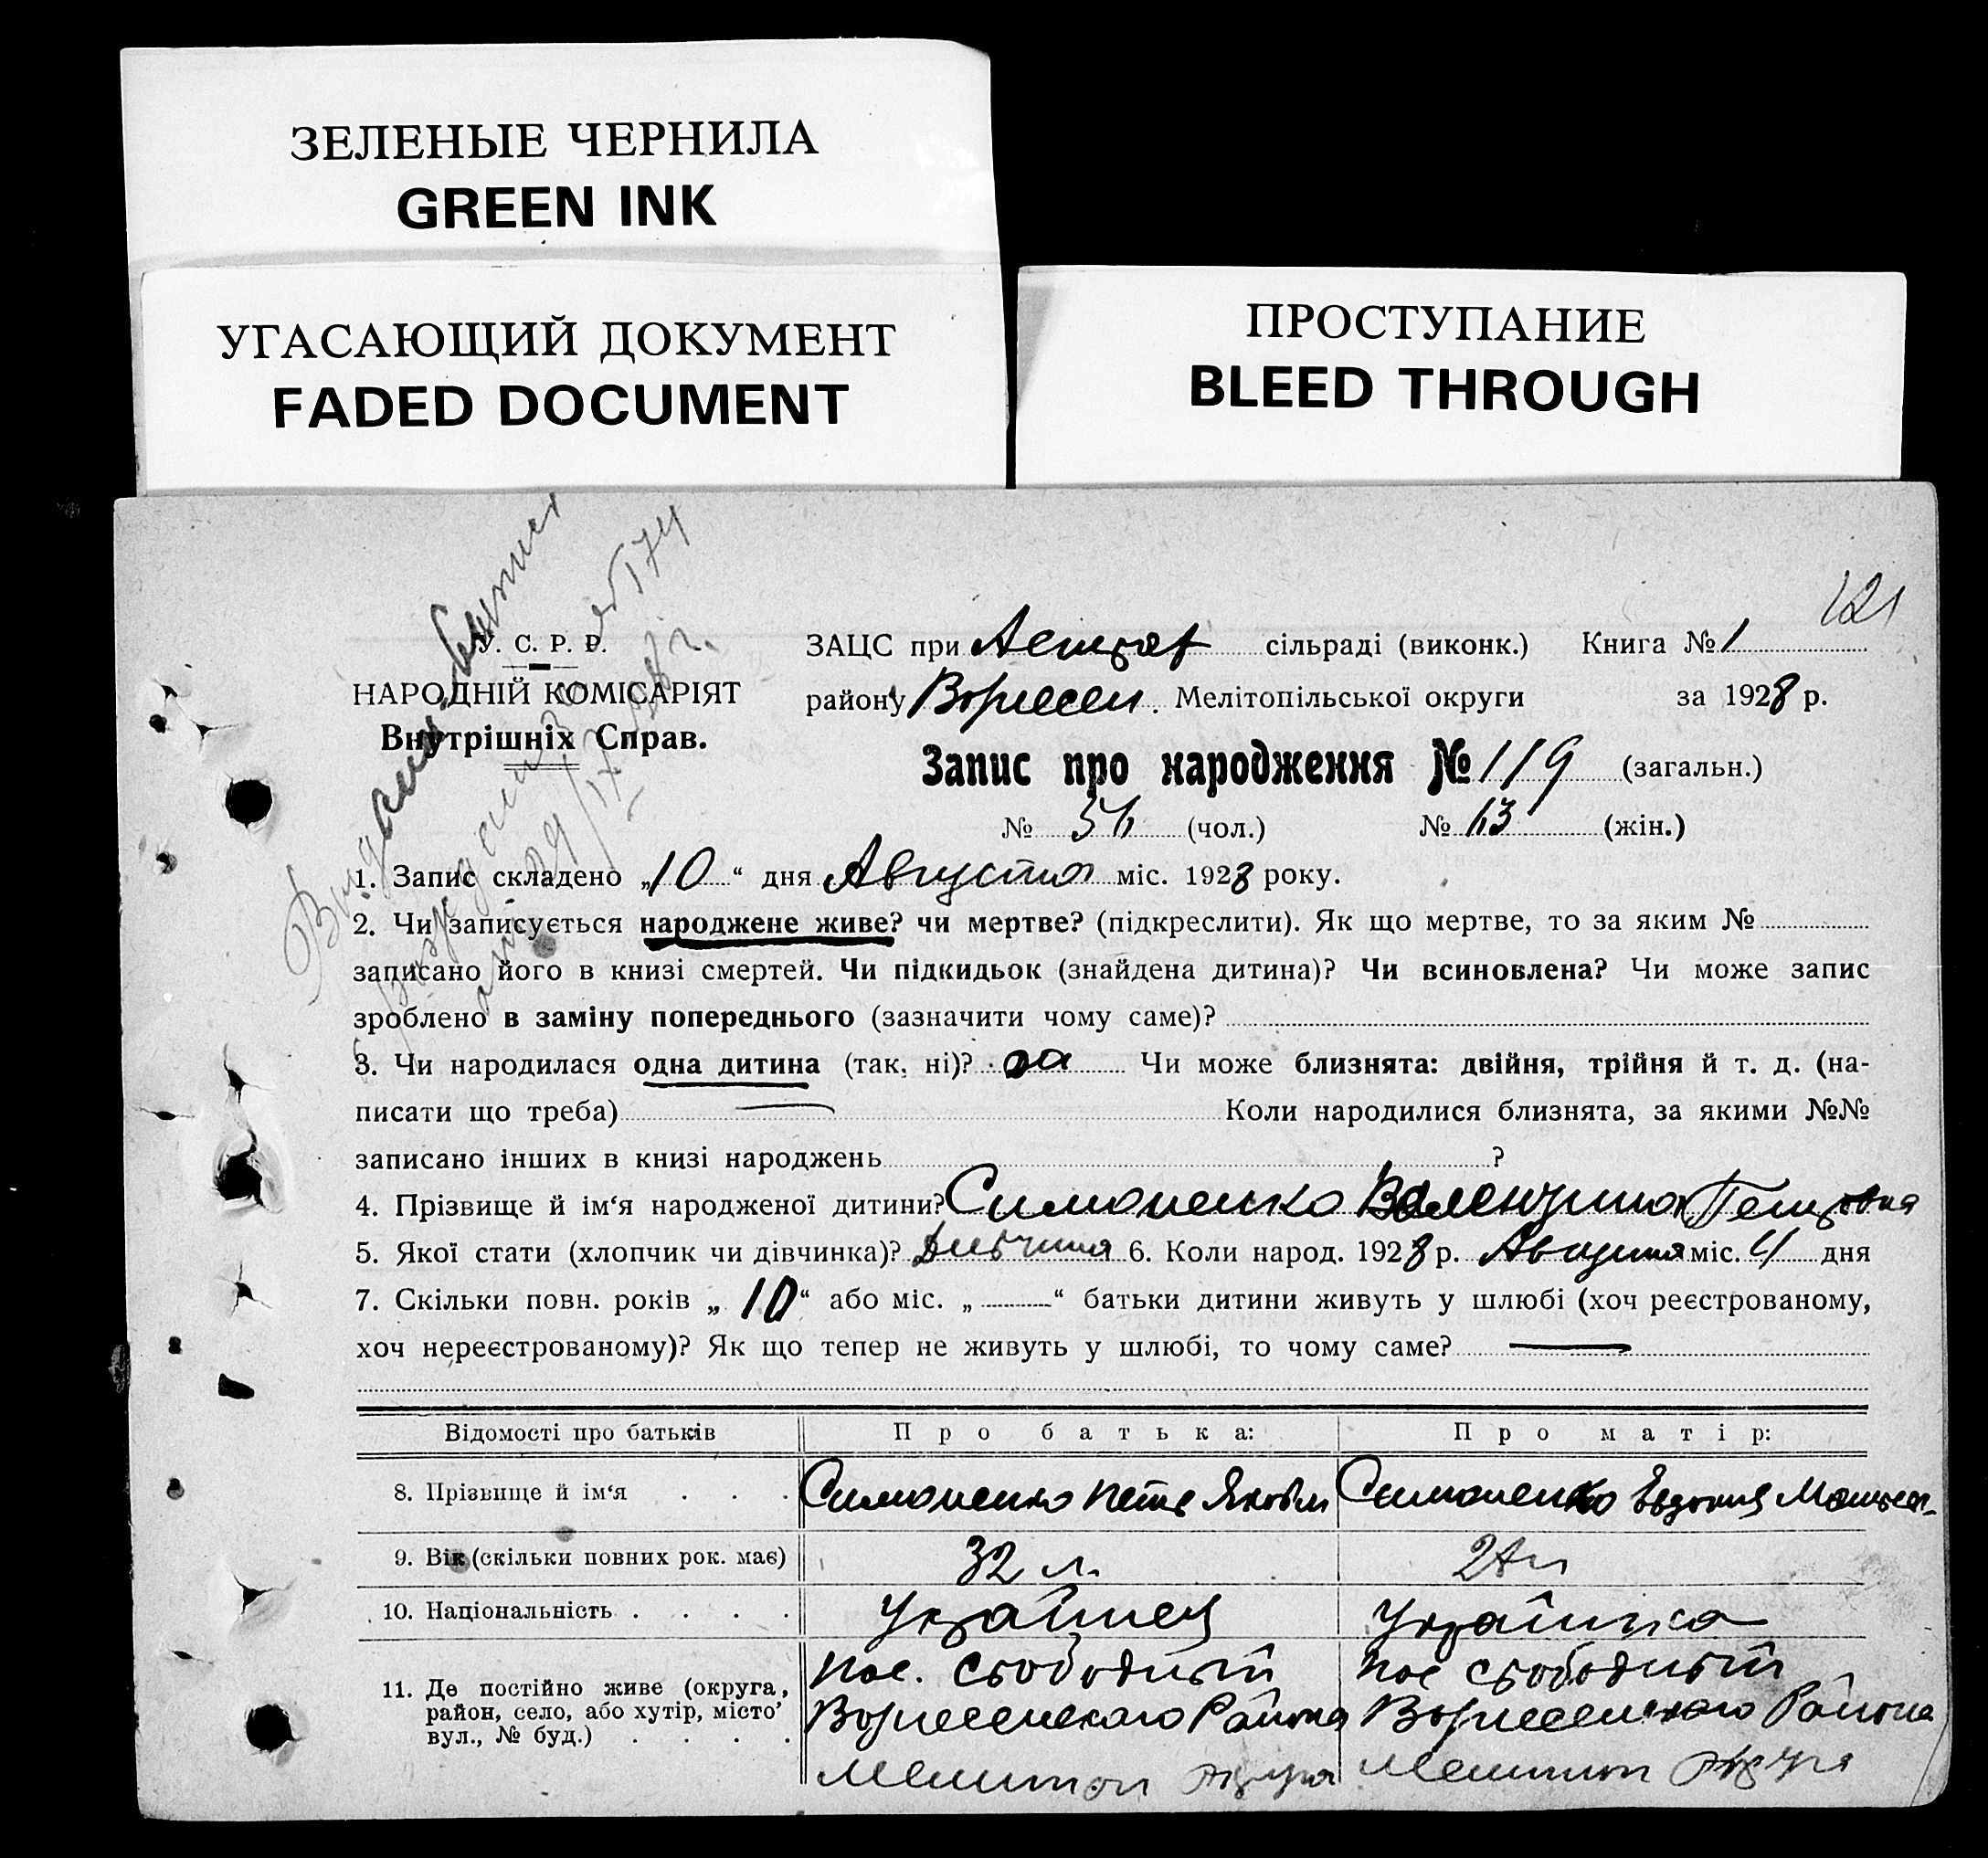 ЗЕЛЕНЫЕ ЧЕРНИЛА
GREEN INK
УГАСАЮЩИЙ ДОКУМЕНТ
FADED DOCUMENT
ПРОСТУПАНИЕ
BLEED THROUGH
121
У. С. Р. Р.
НАРОДНІЙ КОМІСАРІЯТ
Внутрішніх Справ.
ЗАЦС при сільраді (виконк.) Книга № 1
району Вознесен. Мелітопільської округи за 1928 р.
Запис про народження № 119 (загальн.)
№ (чол.) № (жін.)
1. Запис складено „10“ дня Августа міс. 1928 року.
2. Чи записується народжене живе? чи мертве? (підкреслити). Як що мертве, то за яким №
записано його в книзі смертей. Чи підкидьок (знайдена дитина)? Чи всиновлена? Чи може запис
зроблено в заміну попереднього (зазначити чому саме)?
3. Чи народилася одна дитина (так, ні)? Чи може близнята: двійня, трійня й т. д. (на-
писати що треба) Коли народилися близнята, за якими №№
записано інших в книзі народжень ?
4. Прізвище й ім‘я народженої дитини? Симоненко Валентина Петровна
5. Якої стати (хлопчик чи дівчинка)? 6. Коли народ. 1928 р. Августа міс. дня
7. Скільки повн. років „10“ або міс. „ “ батьки дитини живуть у шлюбі (хоч реєстрованому,
хоч нереєстрованому)? Як що тепер не живуть у шлюбі, то чому саме?
Відомості про батьків Про батька: Про матір:
8. Прізвище й ім‘я Симоненко Петр Яковл Симоненко Евдокия
9. Вік (скільки повних рок. має) 32 л.
10. Національність Украинец Українка
11. Де постійно живе (округа, район, село, або хутір, місто вул., № буд.)
пос. Свободный пос Свободный
Вознесенского Района Вознесенского Района
Мелитоп округа Мелитоп округа